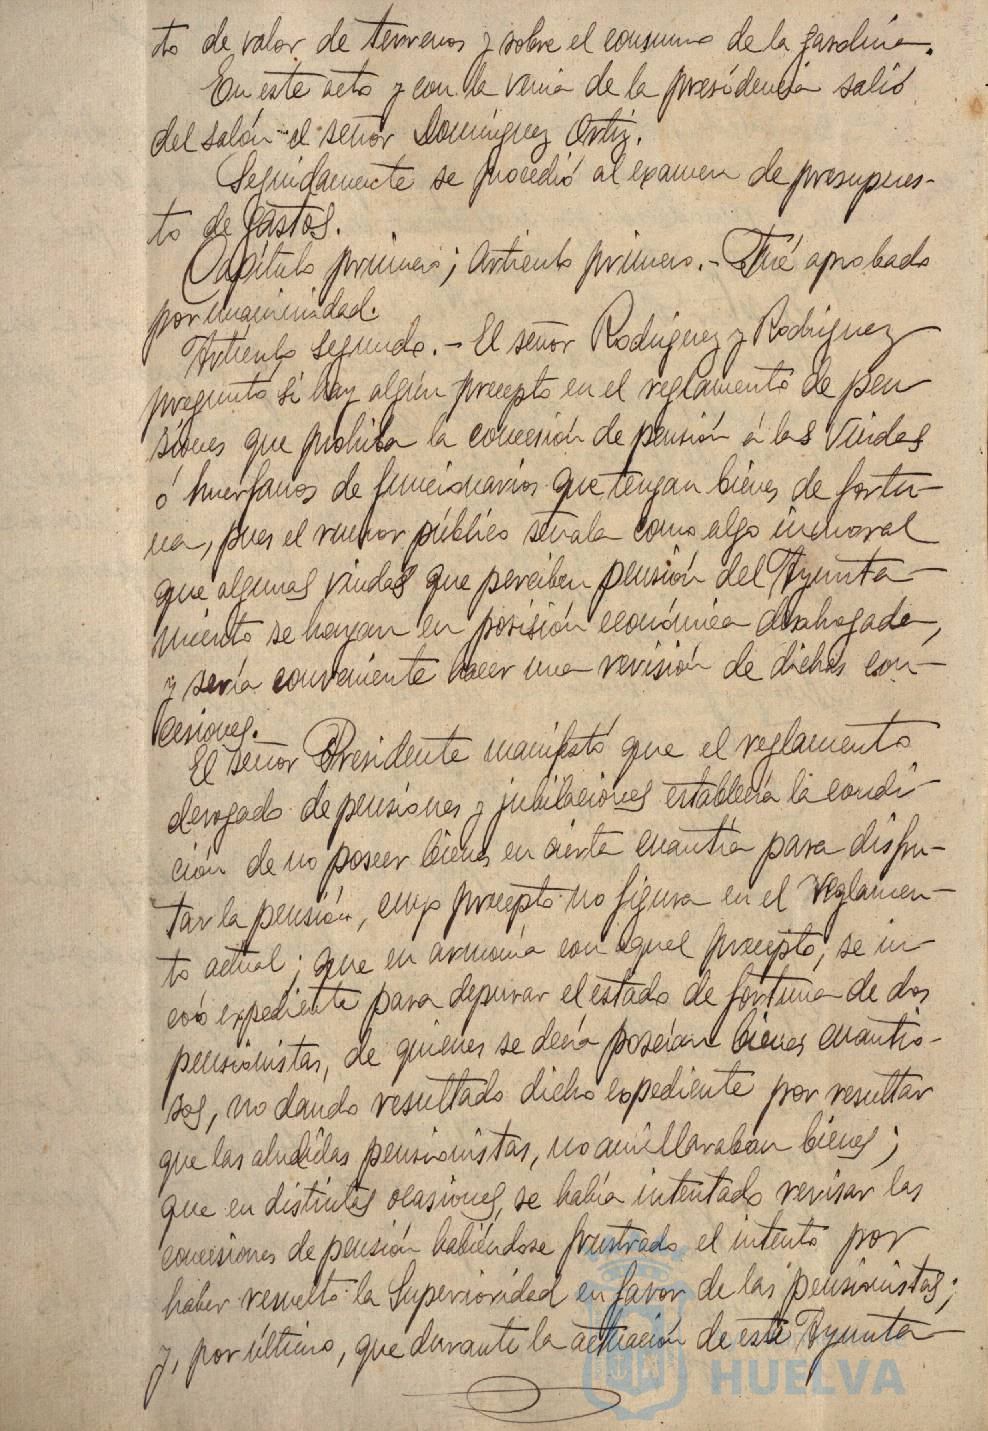 to de valor de terrenos y sobre el consumo de la gasolina.
En este acto y con la venia de la presidencia salió
del salón el señor Domínguez Ortiz.
Seguidamente se procedió al examen de presupues-
to de Gastos.
Capítulo primero; Artículo primero.- Fué aprobado
por unanimidad.
Artículo Segundo.- El señor Rodríguez y Rodríguez
preguntó si hay algún precepto en el reglamento de pen
siones que prohiba la concesión de pensión á las Viudas
ó huerfanos de funcionarios que tengan bienes de fortu-
na, pues el rumor público señala como algo inmoral
que algunas viudas que perciben pensión del Ayunta-
miento se hayan en posisión económica desahogada,
y sería conveniente hacer una revisión de dichas con-
cesiones.
El señor Presidente manifestó que el reglamento
derogado de pensiones y jubilaciones establecía la condi-
ción de no poseer bienes en cierta cuantía para disfru-
tar la pensión, cuyo precepto no figura en el Reglamen-
to actual; que en armonía con aquel precepto, se in-
coó expediente para depurar el estado de fortuna de dos
pensionistas, de quienes se decía poseían bienes cuantio-
sos, no dando resultado dicho expediente por resultar
que las aludidas pensionistas, no amillaraban bienes;
que en distintas ocasiones, se había intentado revisar las
concesiones de pensión habiéndose frustrado el intento por
haber resuelto la Superioridad en favor de las pensionistas;
y, por último, que durante la actuación de este Ayunta-
HUELVA